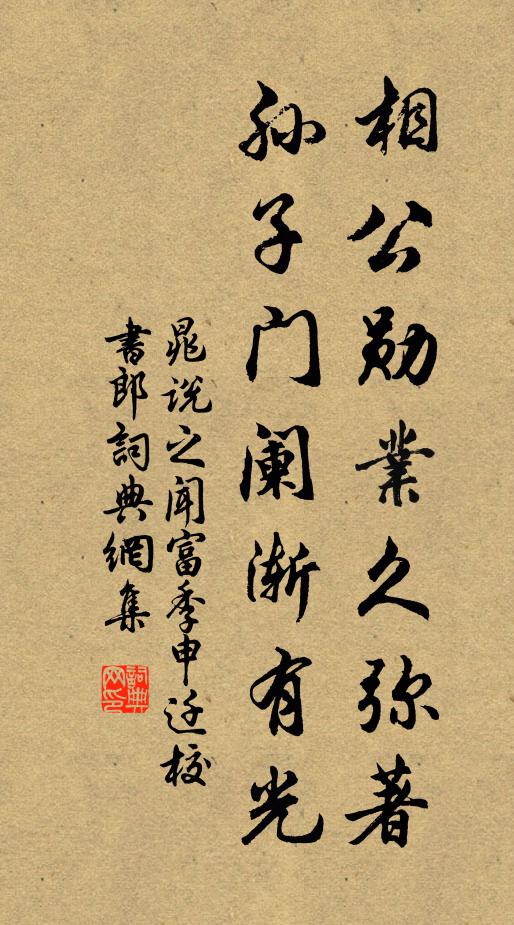 相公勋業久弥著
孙子门阑渐有光
晁说之闻富季申迁校
書郎詞典網集
詞典网印